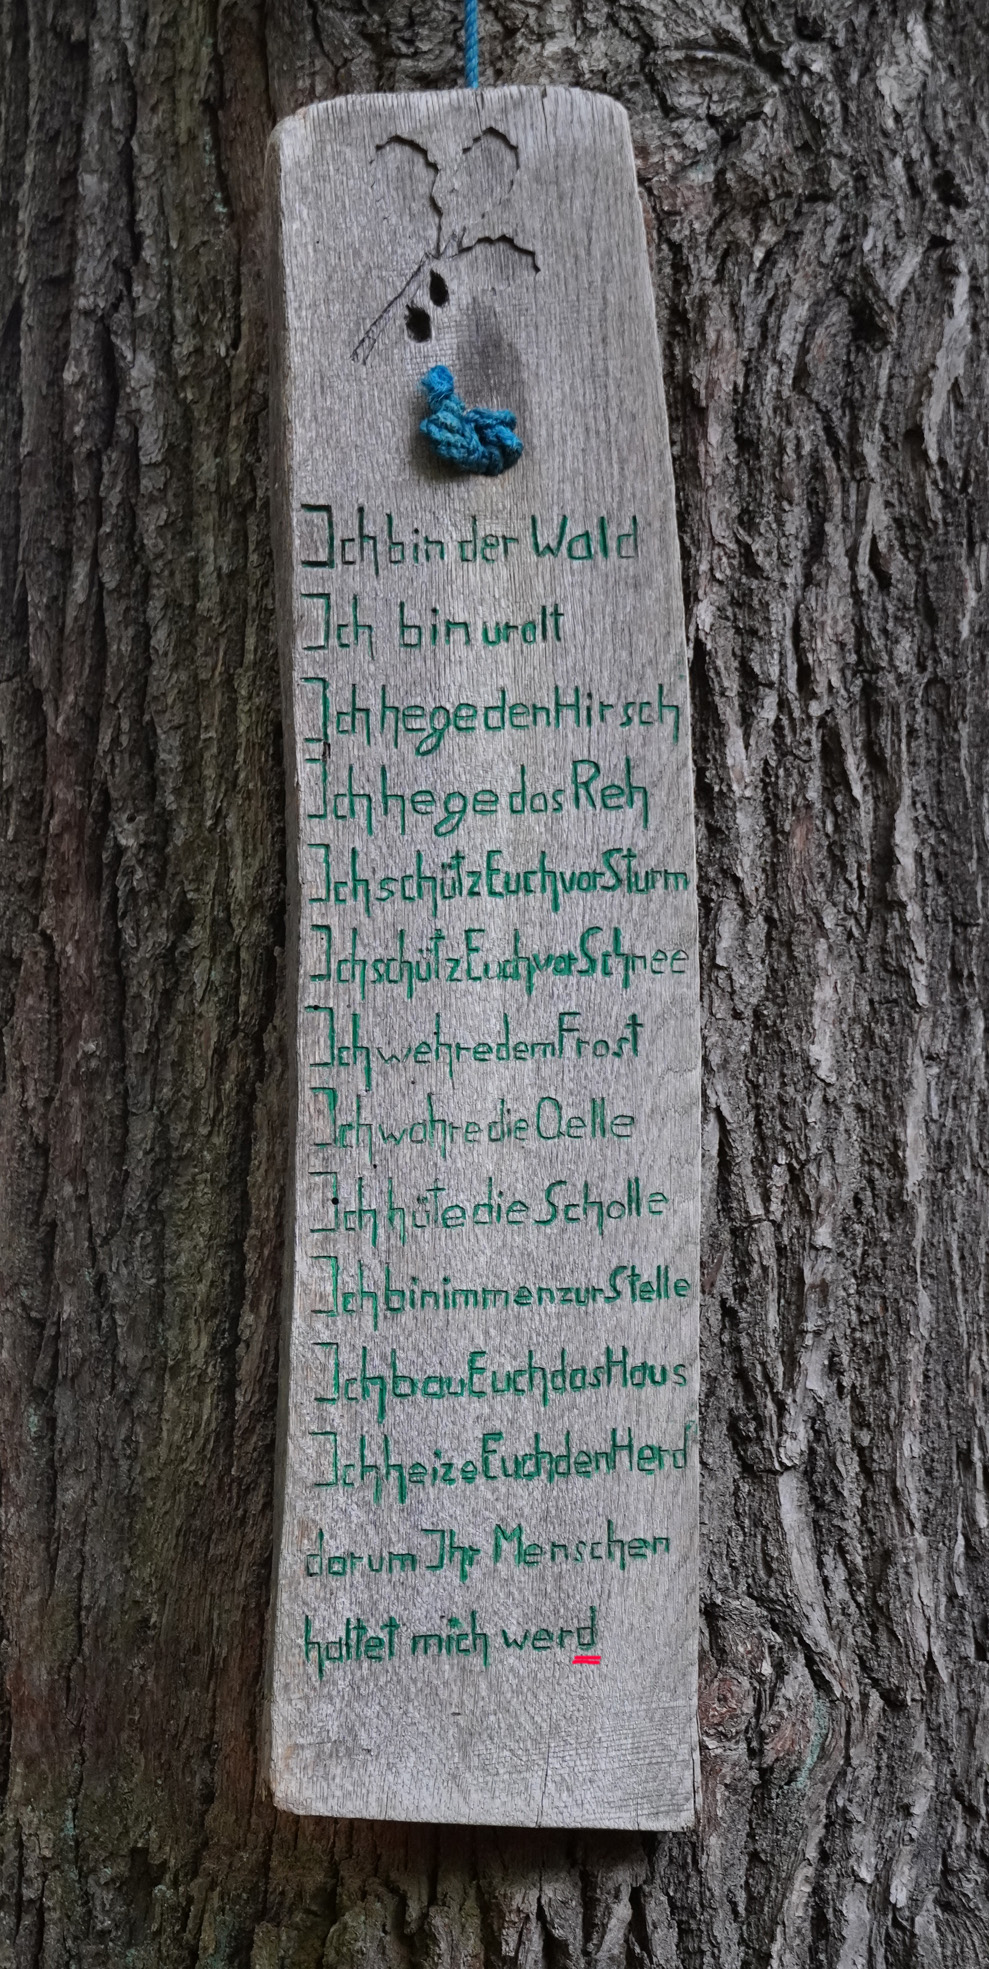 Ich bin der Wald
Ich bin uralt
Ich hege den Hirsch
Ich hege das Reh
Ich schütz Euch vor Sturm
Ich schütz Euch vor Schnee
Ich wehre dem Frost
Ich wahre die Qelle
Ich hüte die Scholle
Ich bin immer zur Stelle
Ich bau Euch das Haus
Ich heize Euch den Herd
darum Ihr Menschen
haltet mich werd